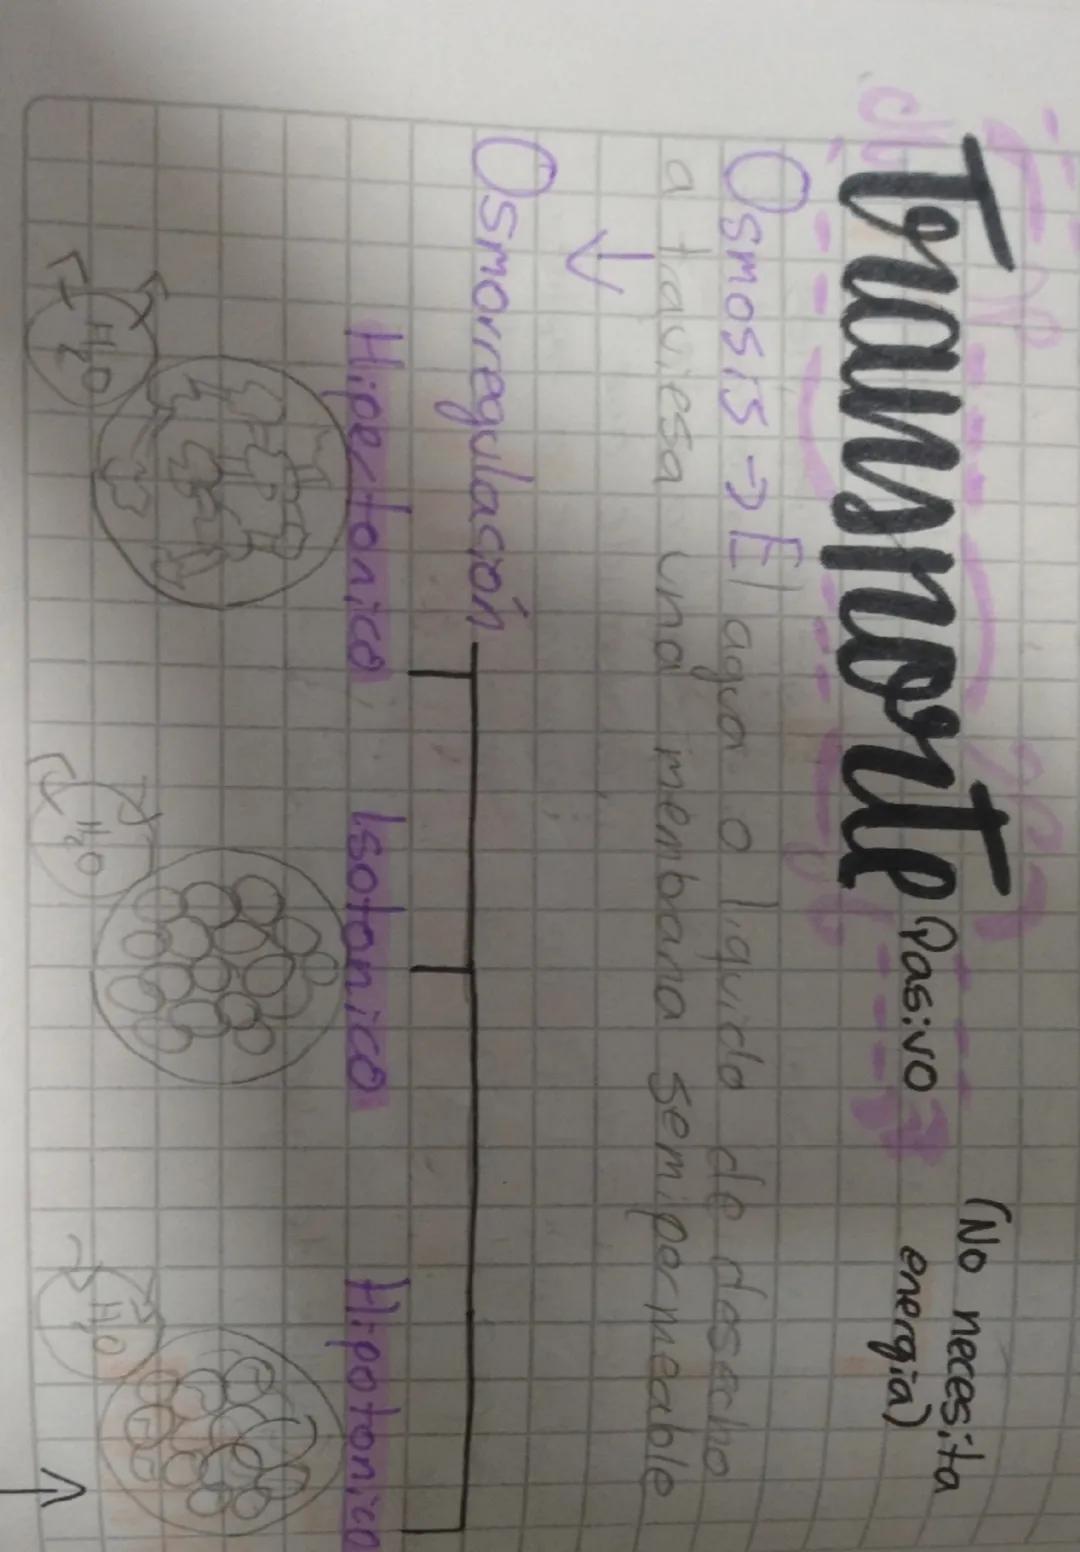 Transporte Pasivo (No necesita
energia)
Osmosis → El agua o liquido de desecho
a traviesa una membana semipermeable
↓
Osmorregulación
Hipertonico Isotonico Hipotonico
H2O H2O H2O